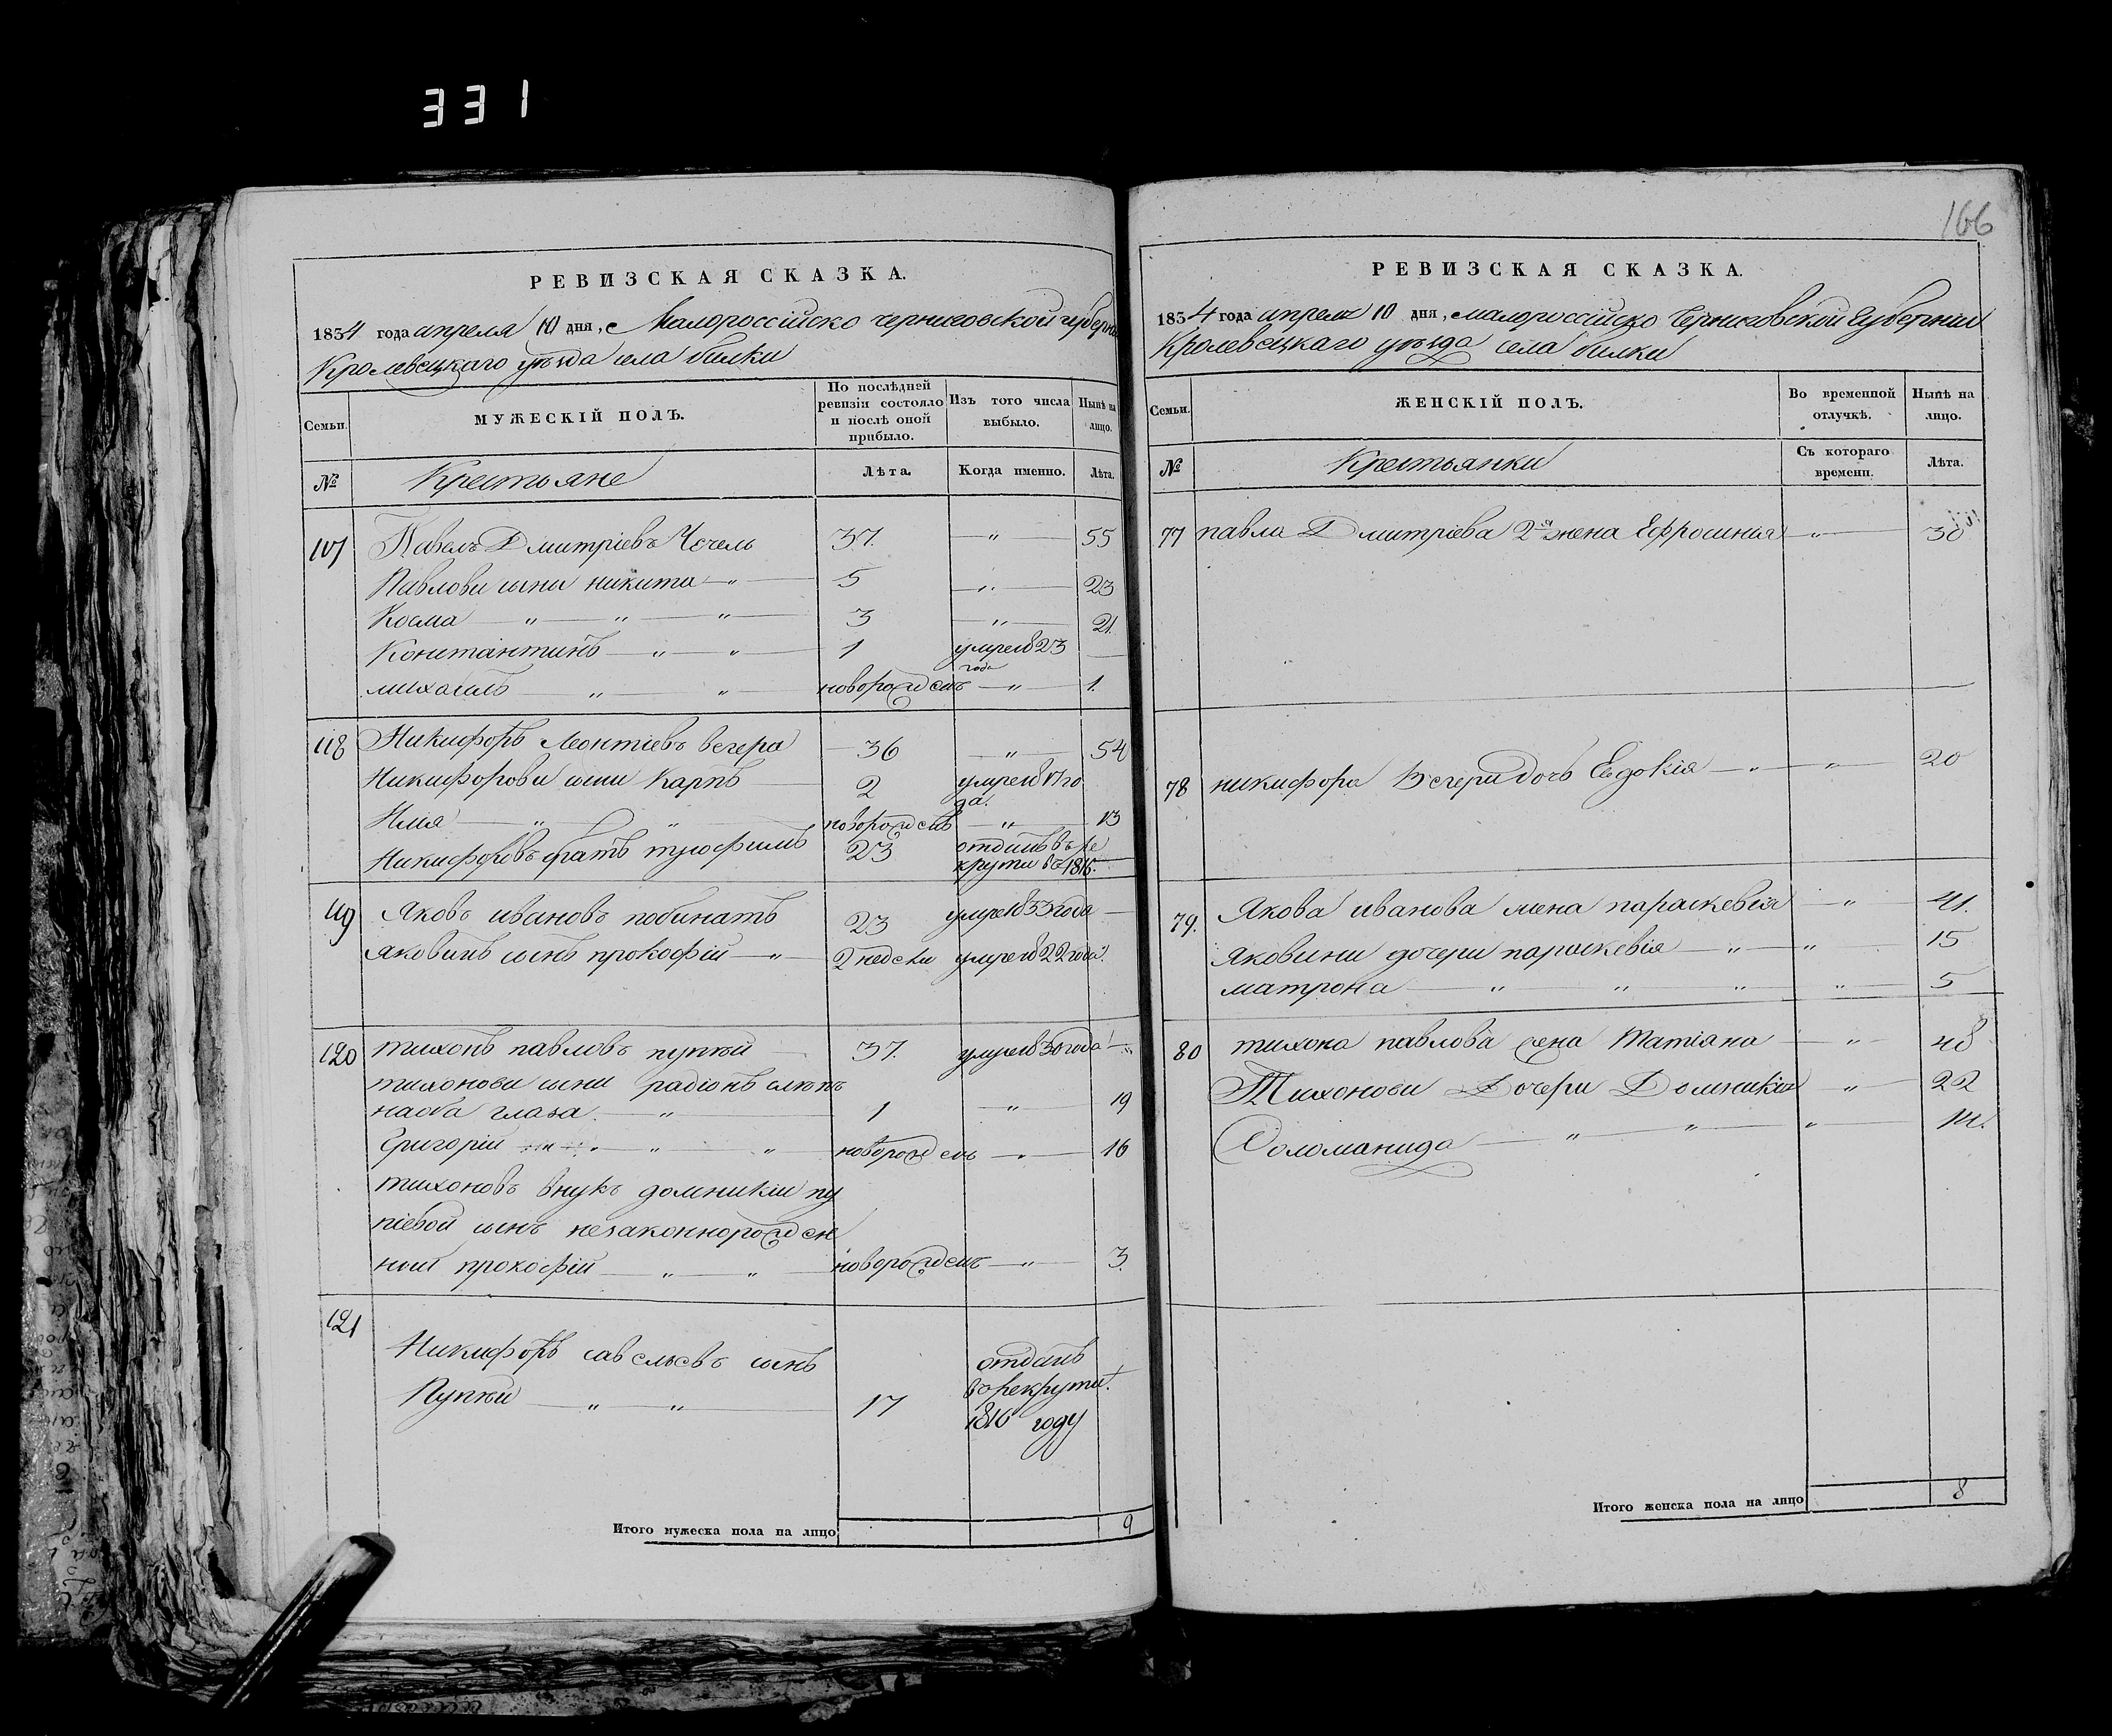 331
РЕВИЗСКАЯ СКАЗКА.
1834 года апреля 10 дня, Малороссійско черниговской губерни
Кролевецкаго уѣзда села билки
Семьи.
МУЖЕСКІЙ ПОЛЪ.
По послѣдней ревизіи состояло и послѣ оной прибыло.
Изъ того числа выбыло.
Нынѣ на лицо.
№
Крестьяне
Лѣта.
Когда именно.
Лѣта.
117 Павелъ Дмитріевъ Чечель 37. — " — 55
Павлови сыни никита — " — 5 — " — 23
Косма — " — " — " — 3 — " — 21.
Константинъ — " — " — 1 умре въ 23 —
года
михаилъ — " — " новорожденъ — " — 1.
118 Никифоръ Леонтіевъ вечера — 36 — " — 54
Никифорови сыни Карпъ — 2 умре въ 17 го
да.
Илья — " — " — новорожденъ — " — 13
Никифоровъ братъ трофимъ 23 отданъ въ ре
крути въ 1816.
119 Яковъ ивановъ побинатъ 23 умре въ 33 года —
яковинъ сынъ прокофій — " — 2 недели умре въ 22 года.
120 тихонъ павловъ пупкѣй — 37. умре въ 30 года — "
тихонови сыни радіонъ слѣпъ
на оба глаза — " 1 — " — 19
Григорій — " — " новорожденъ — " — 16
тихоновъ внукъ домникіи пу
піевой сынъ незаконнорожден
ный прокофій — " — " — новорожденъ — " — 3.
121
Никифоръ савельевъ сынъ отданъ
Пупкѣй — " — " — 17 въ рекрути.
1816 году
Итого мужеска пола на лицо 9
166
РЕВИЗСКАЯ СКАЗКА.
1834 года апреля 10 дня, малороссійско Черниговской Губерніи
Кролевецкаго уѣзда села билки
Семьи.
ЖЕНСКІЙ ПОЛЪ.
Во временной отлучкѣ.
Нынѣ на лицо.
№
Крестьянки
Съ котораго времени.
Лѣта.
77 павла Дмитріева 2я жена Ефросинія — " — 30
78 никифора Вечери дочь Евдокія — " — " — 20
79. Якова иванова жена параскевія — " — 41.
яковини дочери параскевія — " — " 15
матрона — " — " — " — " — 5
80 тихона павлова жена Татіана — " — 48
Тихонови Дочери Домникія — " — 22
Соломанида — " — " — " — 14.
Итого женска пола на лицо 8